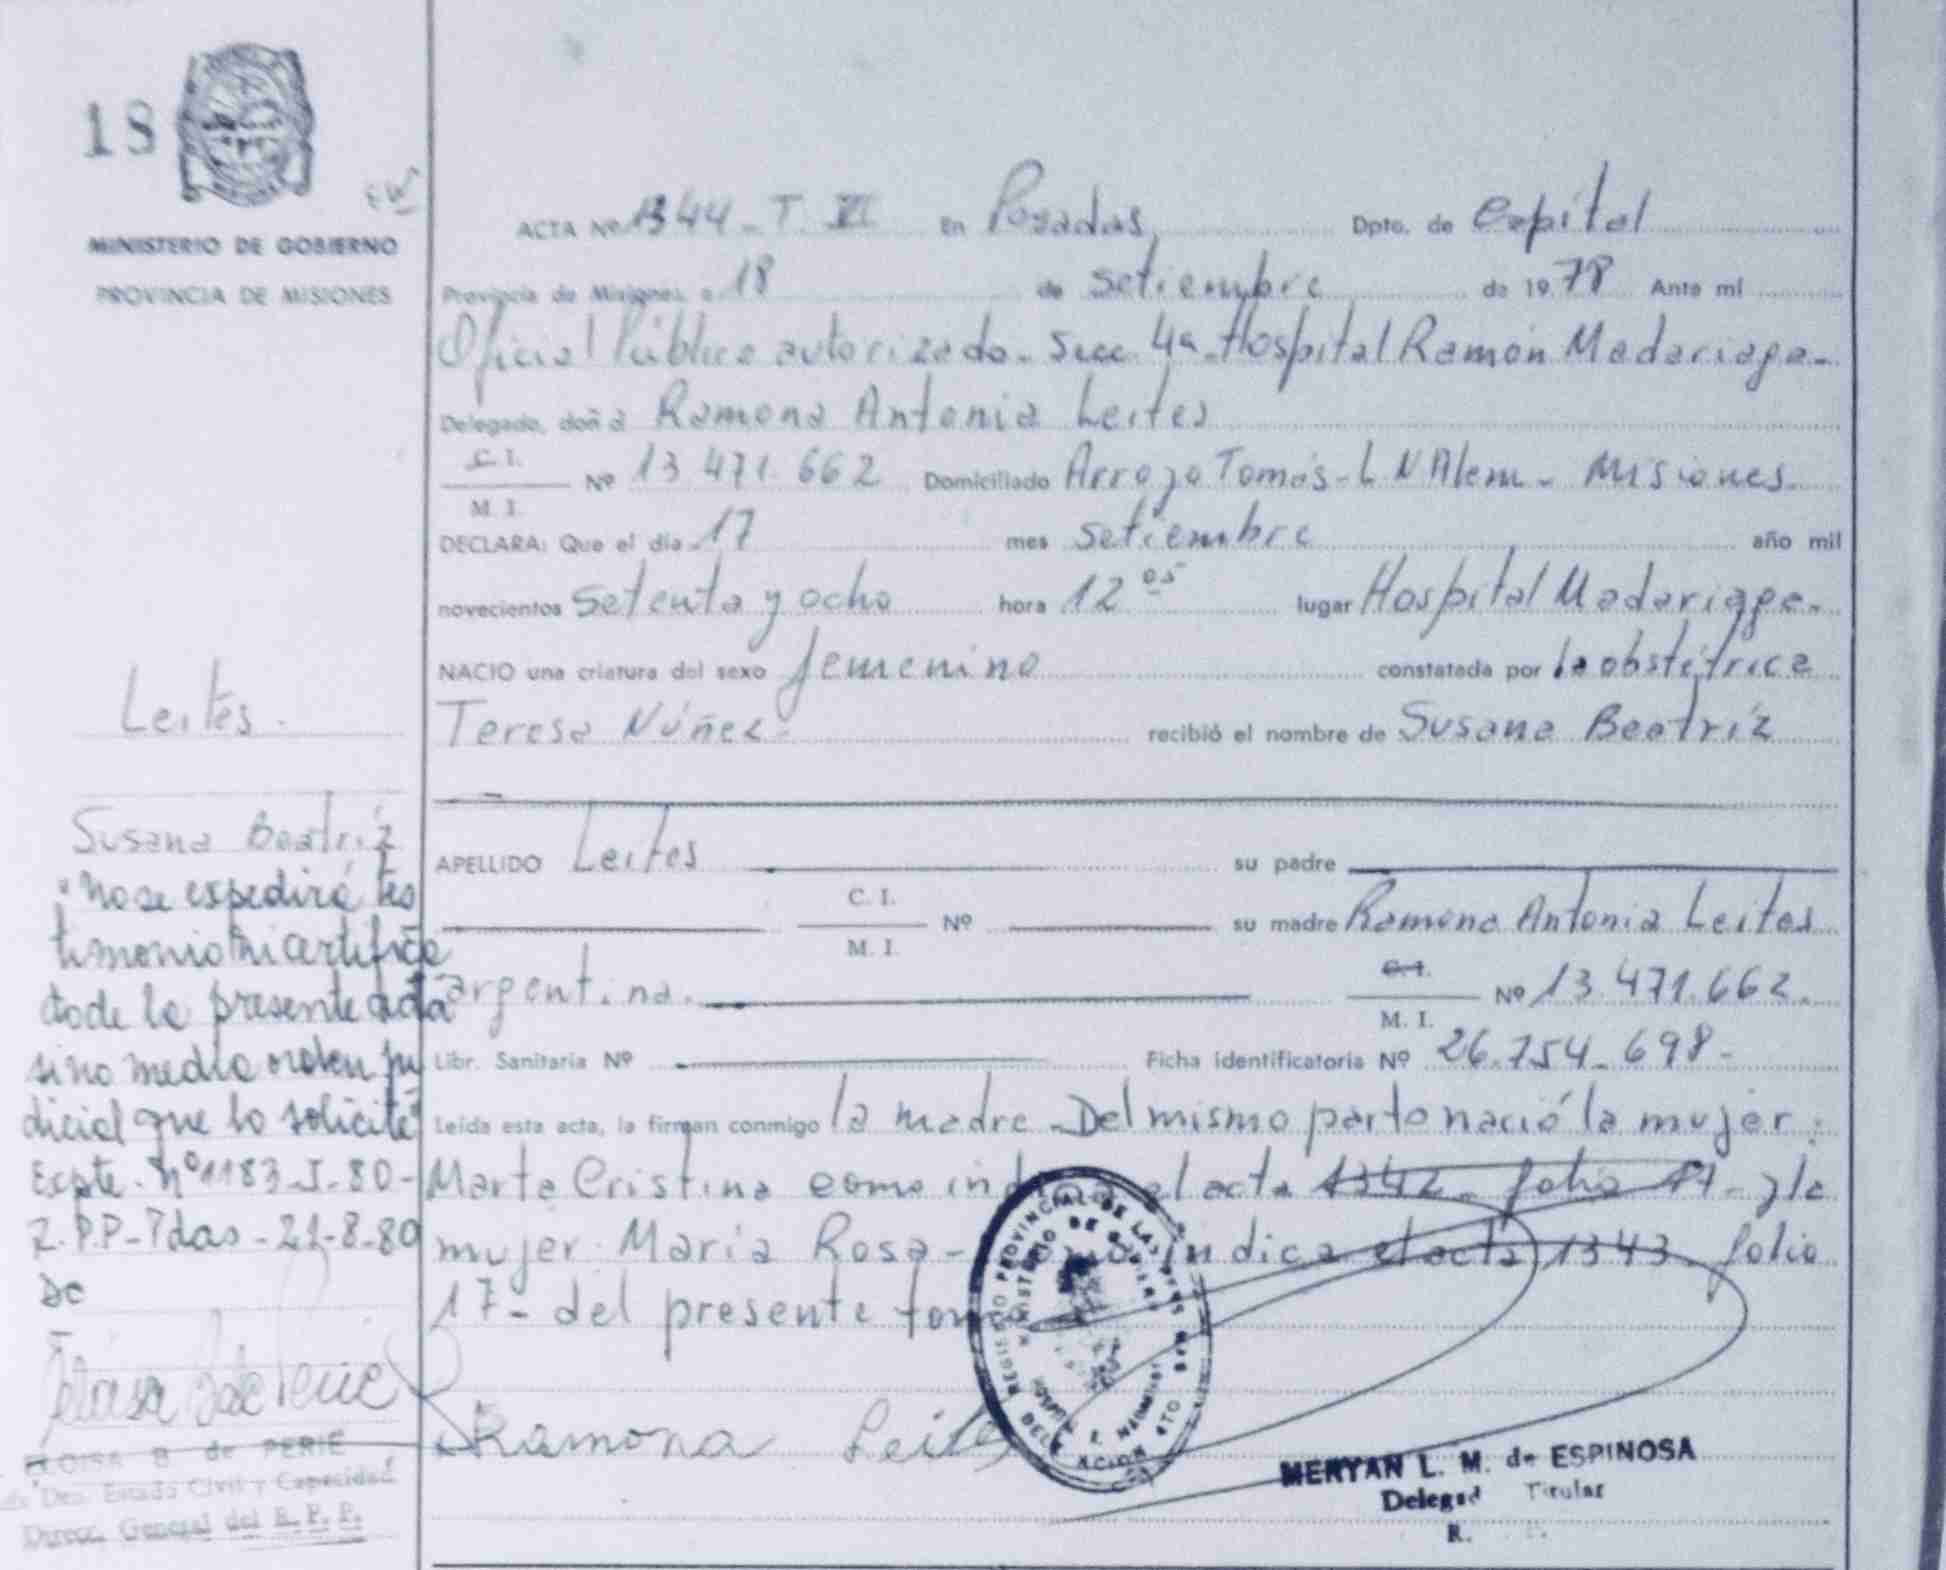 18
MINISTERIO DE GOBIERNO
PROVINCIA DE MISIONES
ACTA Nº 1344 - T. VI En Posadas, Dpto. de Capital
Provincia de Misiones, a 18 de setiembre de 1978 Ante mí
Oficial Público autorizado - Secc. 4ª - Hospital Ramón Madariaga -
Delegado, doña Ramona Antonia Leites
C. I.
M. I.
Nº 13.471.662 Domiciliado Arroyo Tomás - L N Alem - Misiones.
DECLARA: Que el día 17 mes setiembre año mil
novecientos setenta y ocho hora 12 05 lugar Hospital Madariaga -
NACIO una criatura del sexo femenino constatada por la obstétrica
Teresa Núñez - recibió el nombre de Susana Beatríz
APELLIDO Leites su padre
C. I.
M. I.
Nº su madre Ramona Antonia Leites
argentina.
C. I.
M. I.
Nº 13.471.662.
Libr. Sanitaria Nº Ficha identificatoria Nº 26.754.698 -
Leída esta acta, la firman conmigo la madre - Del mismo parto nació la mujer:
Marta Cristina como el acta 1342 - folio - y la
mujer María Rosa - indica el acta 1343 folio
17 - del presente tomo
Ramona Leites
REGISTRO PROVINCIAL DE LAS
MINISTERIO DE GOBIERNO
MERYAN L. M. de ESPINOSA
Delegad Titular
R.
Leites.
Susana Beatríz
"No se expedirá tes
timonio ni certifica
do de la presente acta
sino media orden ju
dicial que lo solicite"
Expte. Nº 1183-I-80-
R.P.P - Pdas - 21-8-80
ELOISA B de PERIE
Dto. Estado Civil y Capacidad
Direcc. General del R. P. P.